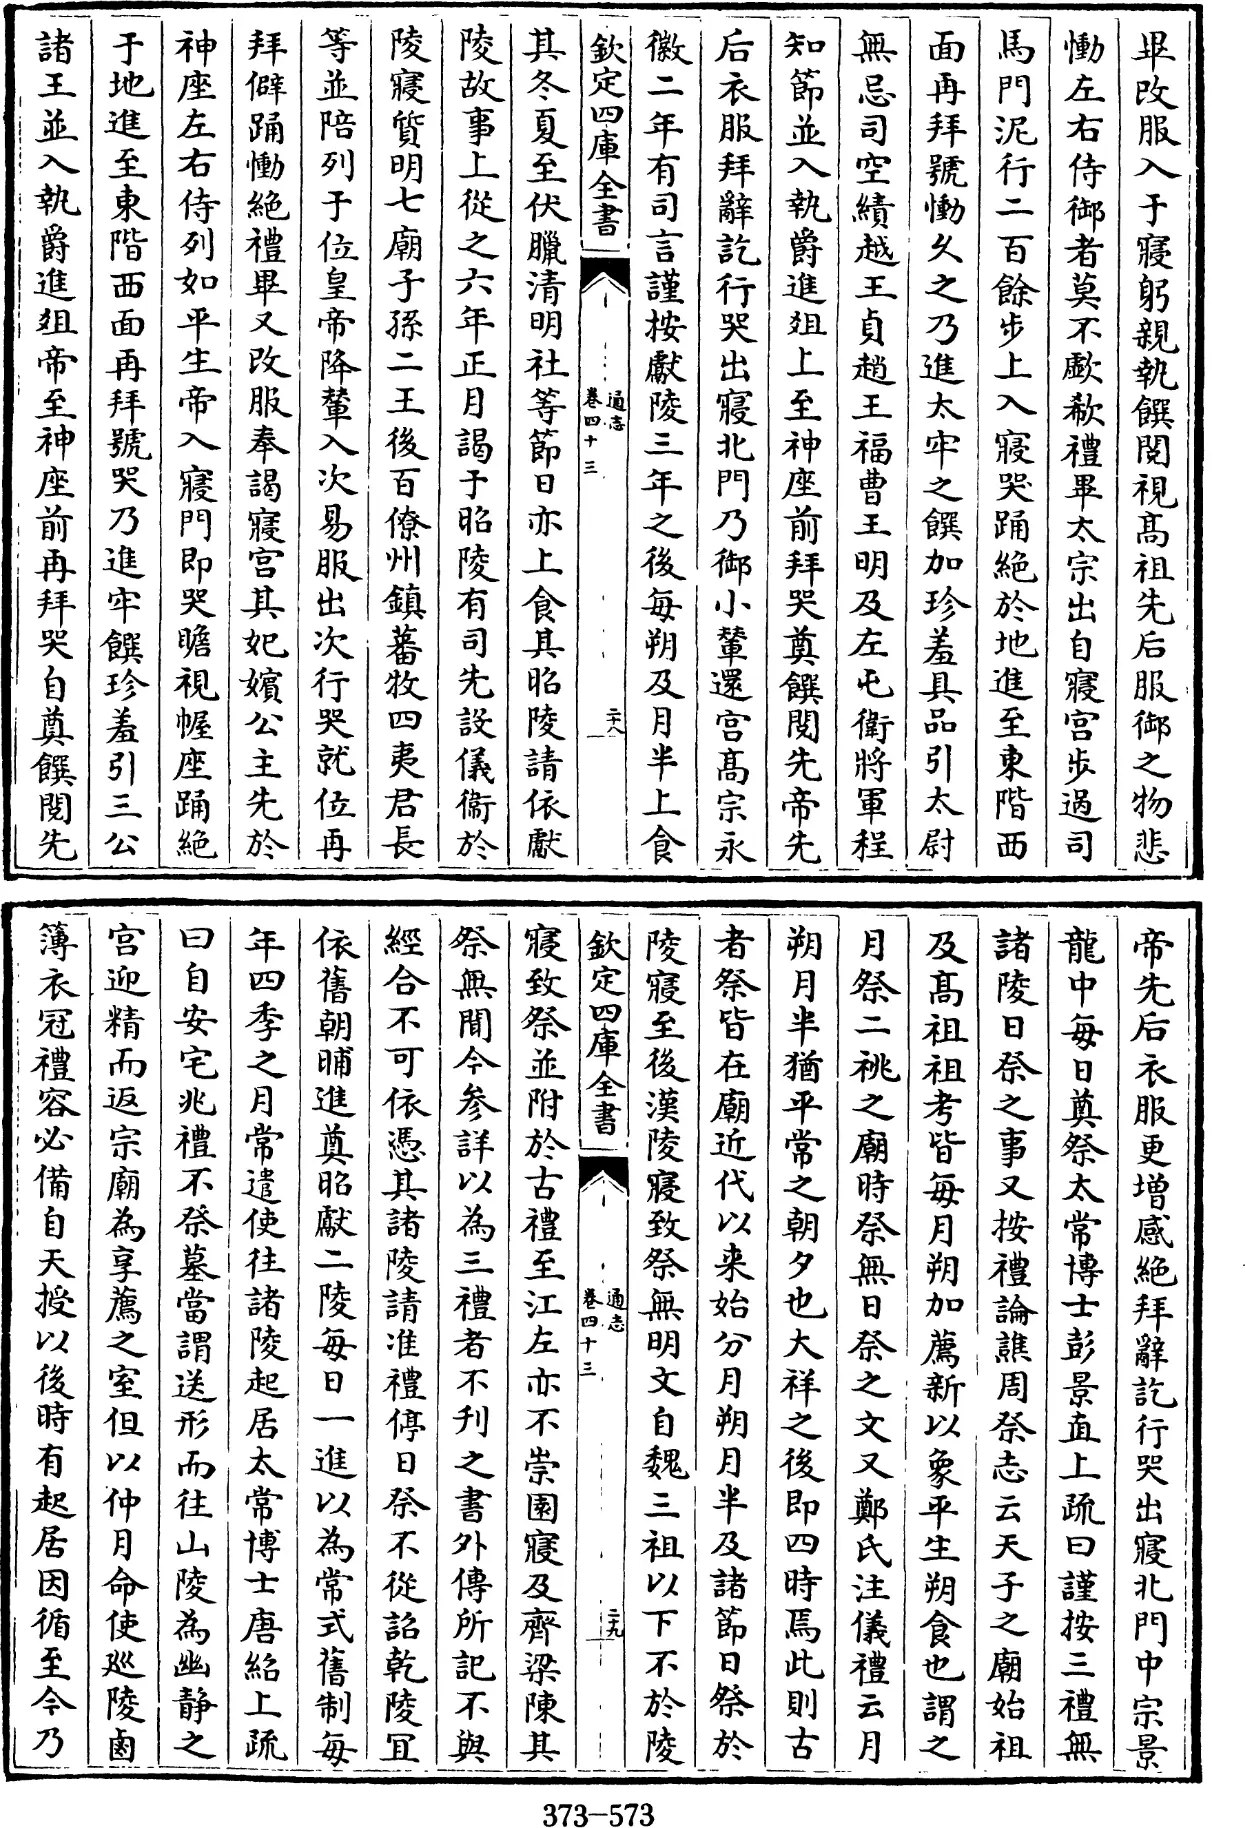 畢改服入于寢躬親執饌閱視髙祖先后服御之物悲
慟左右侍御者莫不歔欷禮畢太宗出自寢宫步過司
馬門泥行二百餘步上入寢哭踊絶於地進至東階西
面再拜號慟久之乃進太牢之饌加珍羞具品引太尉
無忌司空績越王貞趙王福曹王明及左屯衛將軍程
知節並入執爵進俎上至神座前拜哭奠饌閱先帝先
后衣服拜辭訖行哭出寢北門乃御小輦還宫髙宗永
徽二年有司言謹按獻陵三年之後每朔及月半上食
欽定四庫全書
通志
卷四十三
二十八
其冬夏至伏臘清明社等節日亦上食其昭陵請依獻
陵故事上從之六年正月謁于昭陵有司先設儀衞於
陵寢質明七廟子孫二王後百僚州鎮蕃牧四夷君長
等並陪列于位皇帝降輦入次易服出次行哭就位再
拜僻踊慟絶禮畢又改服奉謁寢宫其妃嬪公主先於
神座左右侍列如平生帝入寢門即哭瞻視幄座踊絶
于地進至東階西面再拜號哭乃進牢饌珍羞引三公
諸王並入執爵進俎帝至神座前再拜哭自奠饌閱先
帝先后衣服更増感絶拜辭訖行哭出寢北門中宗景
龍中每日奠祭太常博士彭景直上疏曰謹按三禮無
諸陵日祭之事又按禮論譙周祭志云天子之廟始祖
及髙祖祖考皆每月朔加薦新以象平生朔食也謂之
月祭二祧之廟時祭無日祭之文又鄭氏注儀禮云月
朔月半猶平常之朝夕也大祥之後即四時焉此則古
者祭皆在廟近代以来始分月朔月半及諸節日祭於
陵寢至後漢陵寢致祭無明文自魏三祖以下不於陵
欽定四庫全書
通志
卷四十三
二十九
寢致祭並附於古禮至江左亦不崇園寢及齊梁陳其
祭無聞今參詳以為三禮者不刋之書外傳所記不與
經合不可依憑其諸陵請准禮停日祭不從詔乾陵冝
依舊朝晡進奠昭獻二陵每日一進以為常式舊制每
年四季之月常遣使往諸陵起居太常博士唐紹上疏
曰自安宅兆禮不祭墓當謂送形而往山陵為幽静之
宫迎精而返宗廟為享薦之室但以仲月命使廵陵鹵
簿衣冠禮容必備自天授以後時有起居因循至今乃
373-573